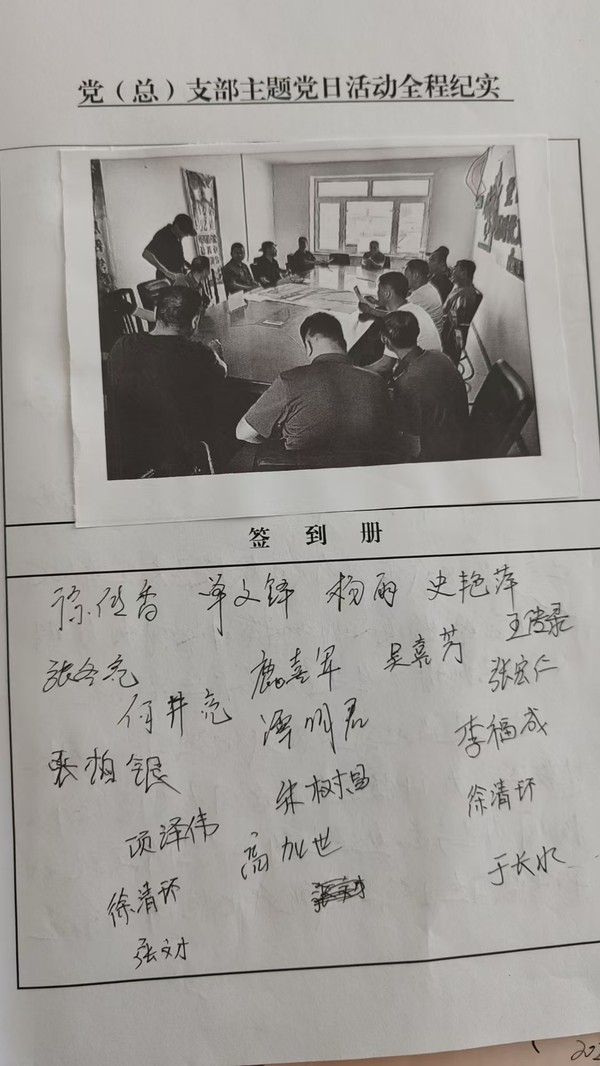 党（总）支部主题党日活动全程纪实
签 到 册
徐传香 单文锋 杨雨 史艳萍
王传录
张冬亮 鹿喜军 吴嘉芳
张宏仁
何井亮 谭明君
李福成
张柏银
朱树昌 徐清环
项泽伟 高加世
徐清环 于长水
张文才